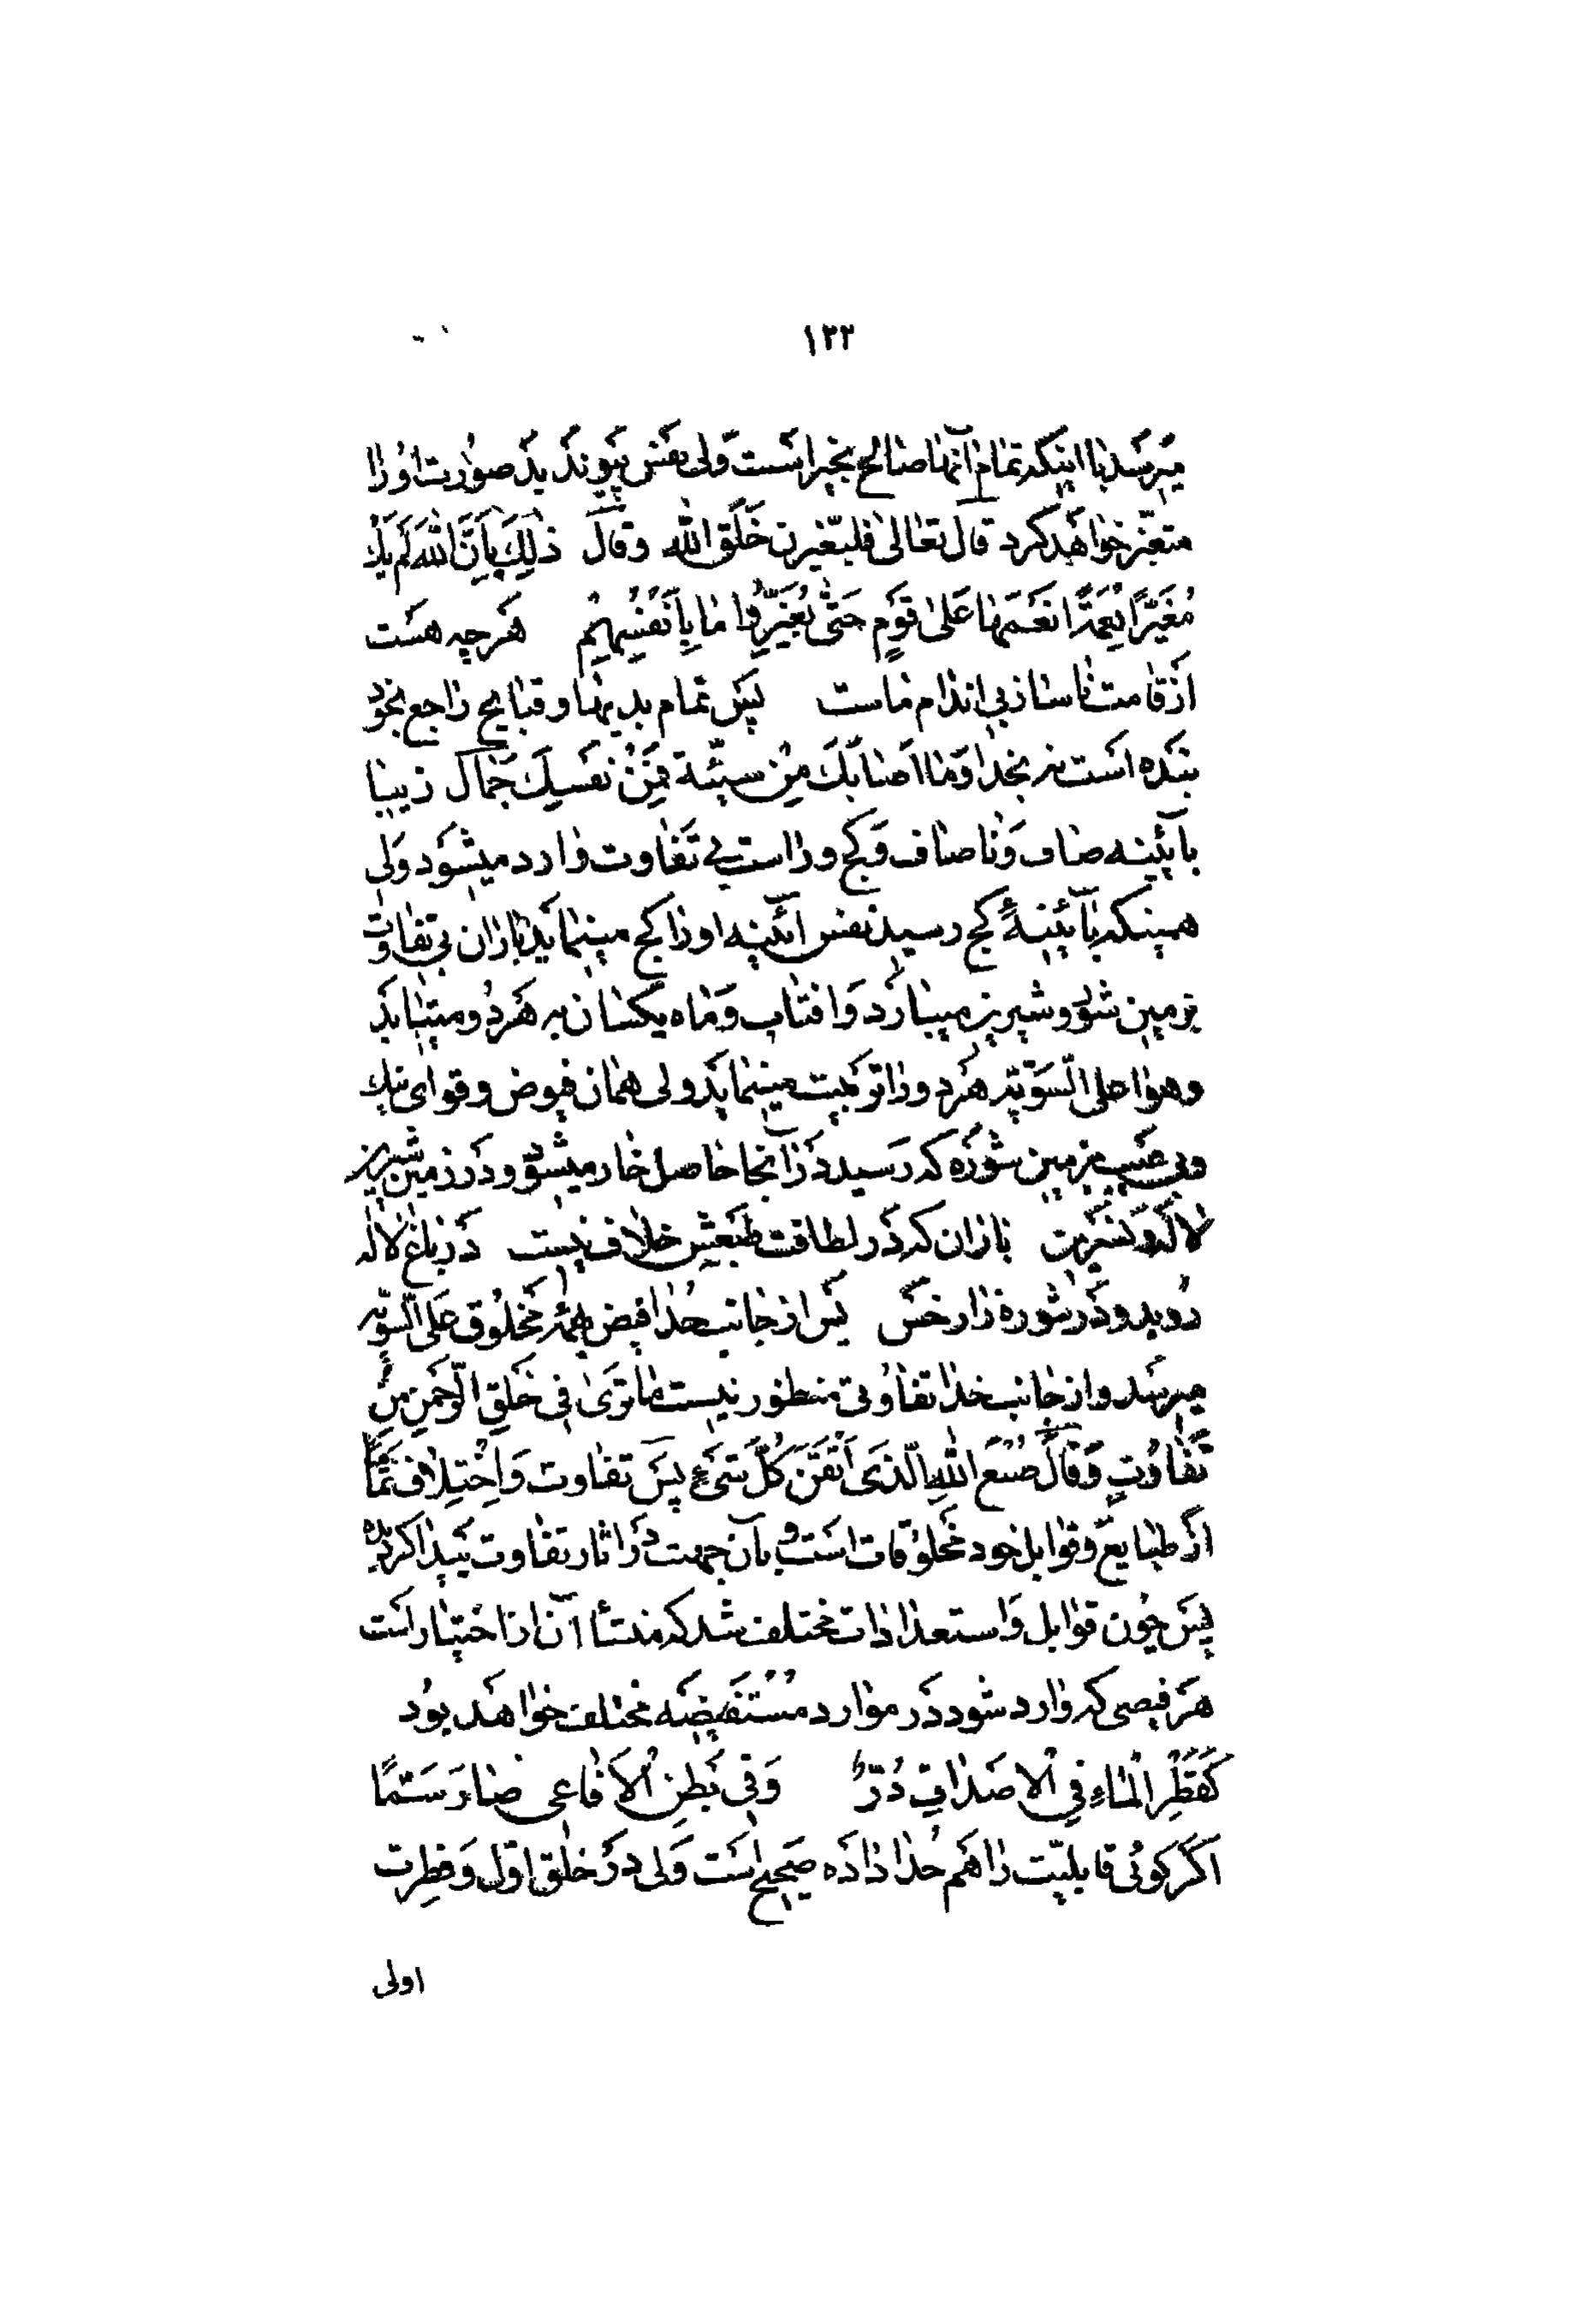 ۱۳۲
میرسد با اینکه تمام آنها صالح بخیر است ولی نفس پیوند بد صورت او را
متغیّر خواهد کرد قال تعالی فلیغیرن خَلَق الله وقال ذٰلِکَ بِاَنَّ اللهَ لَم یَکُ
مُغَیِّرًا نِعمَةً انعَمَها عَلیٰ قَومٍ حَتّی یُغَیِّرُوا ما بِاَنفُسِهِم هر چه هست
از قامت ناساز بی اندام ماست پس تمام بدیها و قبایح راجع بخود
بنده است نه بخدا وَما اَصابَکَ مِن سیّئة فَمِن نَفسِکَ جمال زیبا
بآیینه صاف و ناصاف و کج و راست بی تفاوت وارد میشود ولی
همینکه بآئینۀ کج رسید نفس آئینه او را کج مینماید باران بی تفاوت
بزمین شور و شیرین میبارد و افتاب و ماه یکسان به هر دو میتابد
و هوا علی السّویّه هر دو را تربیت مینماید ولی همان فیوض و قوای نیک
وبی عیب بزمین شوره که رسید در آنجا حاصل خار میشود و در زمین شیرین
لاله و نسرین باران که در لطافت طبعش خلاف نیست در باغ لاله
روید و در شوره زار خس پس از جانب خدا فیض بهمه مخلوق عَلَی السّویّه
میرسد و از جانب خدا تفاوتی منظور نیست ما تَریٰ فی خَلقِ الرّحمنِ مِن
تَفاوُتٍ وَقالَ صُنعَ اللهِ الّذی اَتقَنَ کُلَّ شَیءٍ پس تفاوت وَاختِلاف تماماً
از طبایع و قوابل خود مخلوقات است و بآن جهت در اثار تفاوت پیدا کرده
پس چون قوابل و استعدادات مختلف شد که منشأ آن از اختیار است
هر فیضی که وارد شود در موارد مُستَفیضه مختلف خواهد بود
کَقَطرِ الماءِ فِی الاصدافِ دُرٌّ وَفی بَطنِ الاَفاعی صارَ سَمّاً
اگر گوئی قابلیّت را هم خدا داده صحیح است ولی در خلق اوّل و فطرت
اولی